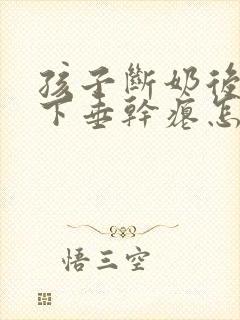 孩子斷奶後
下垂幹瘪怎
悟三空